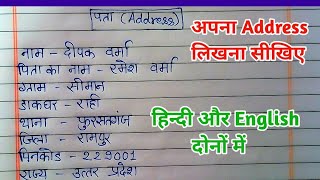 पता (Address)
नाम - दीपक वर्मा
पिता का नाम - रमेश वर्मा
ग्राम - सीमान
डाकघर - राही
थाना - फुरसतगंज
जिला - रामपुर
पिनकोड - 229001
राज्य - उत्तर प्रदेश
अपना Address
लिखना सीखिए
हिन्दी और English
दोनों में